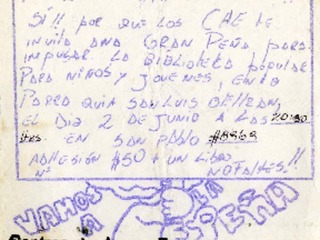 SÍ!! POR QUE LOS CAE TE
INVITA UNA GRAN PEÑA PARA
IMPULSAR LA BIBLIOTECA POPULAR
PARA NIÑOS Y JOVENES, EN LA
PARROQUIA SAN LUIS BELTRAN,
EL DIA 2 DE JUNIO A LAS 20:30
Hrs. EN SAN PABLO #8868
ADHESIÓN $50 + UN LIBRO
Nº NO FALTES!!
VAMOS A LA PEÑA